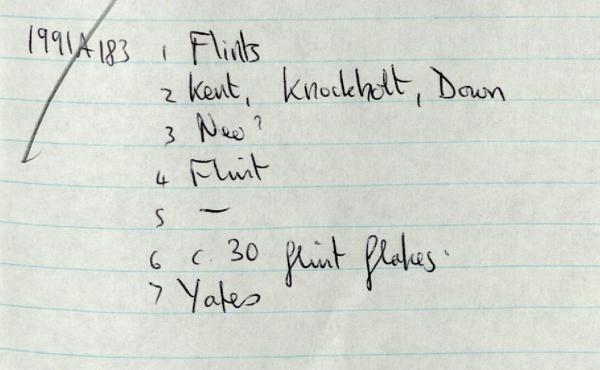 1991A183 1 Flints
2 Kent, Knockholt, Down
3 Neo?
4 Flint
5 —
6 c. 30 flint flakes.
7 Yates